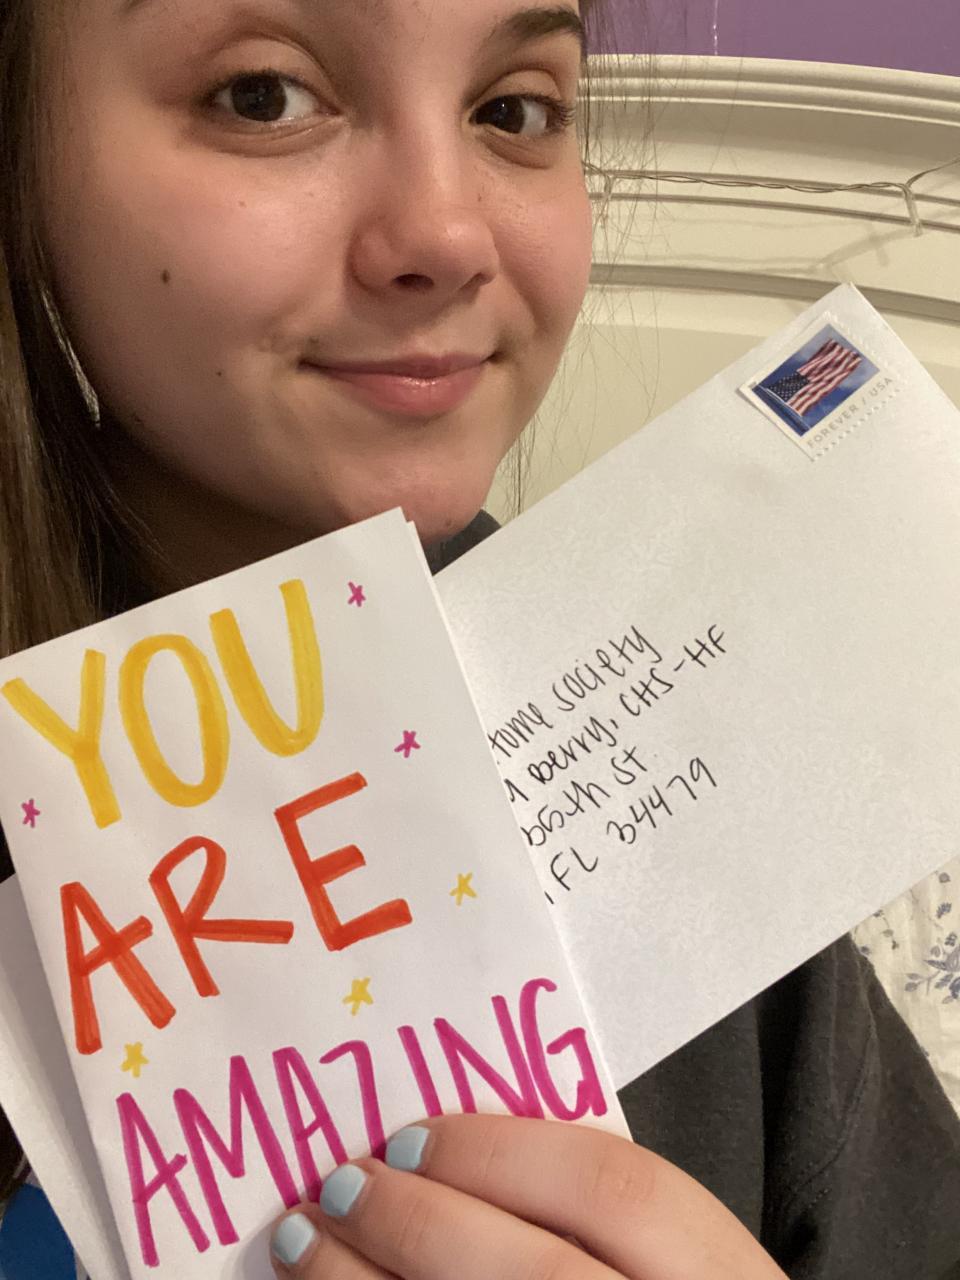 YOU
ARE
AMAZING
FOREVER / USA
society
berry, CHS-HF
St.
, FL 34479